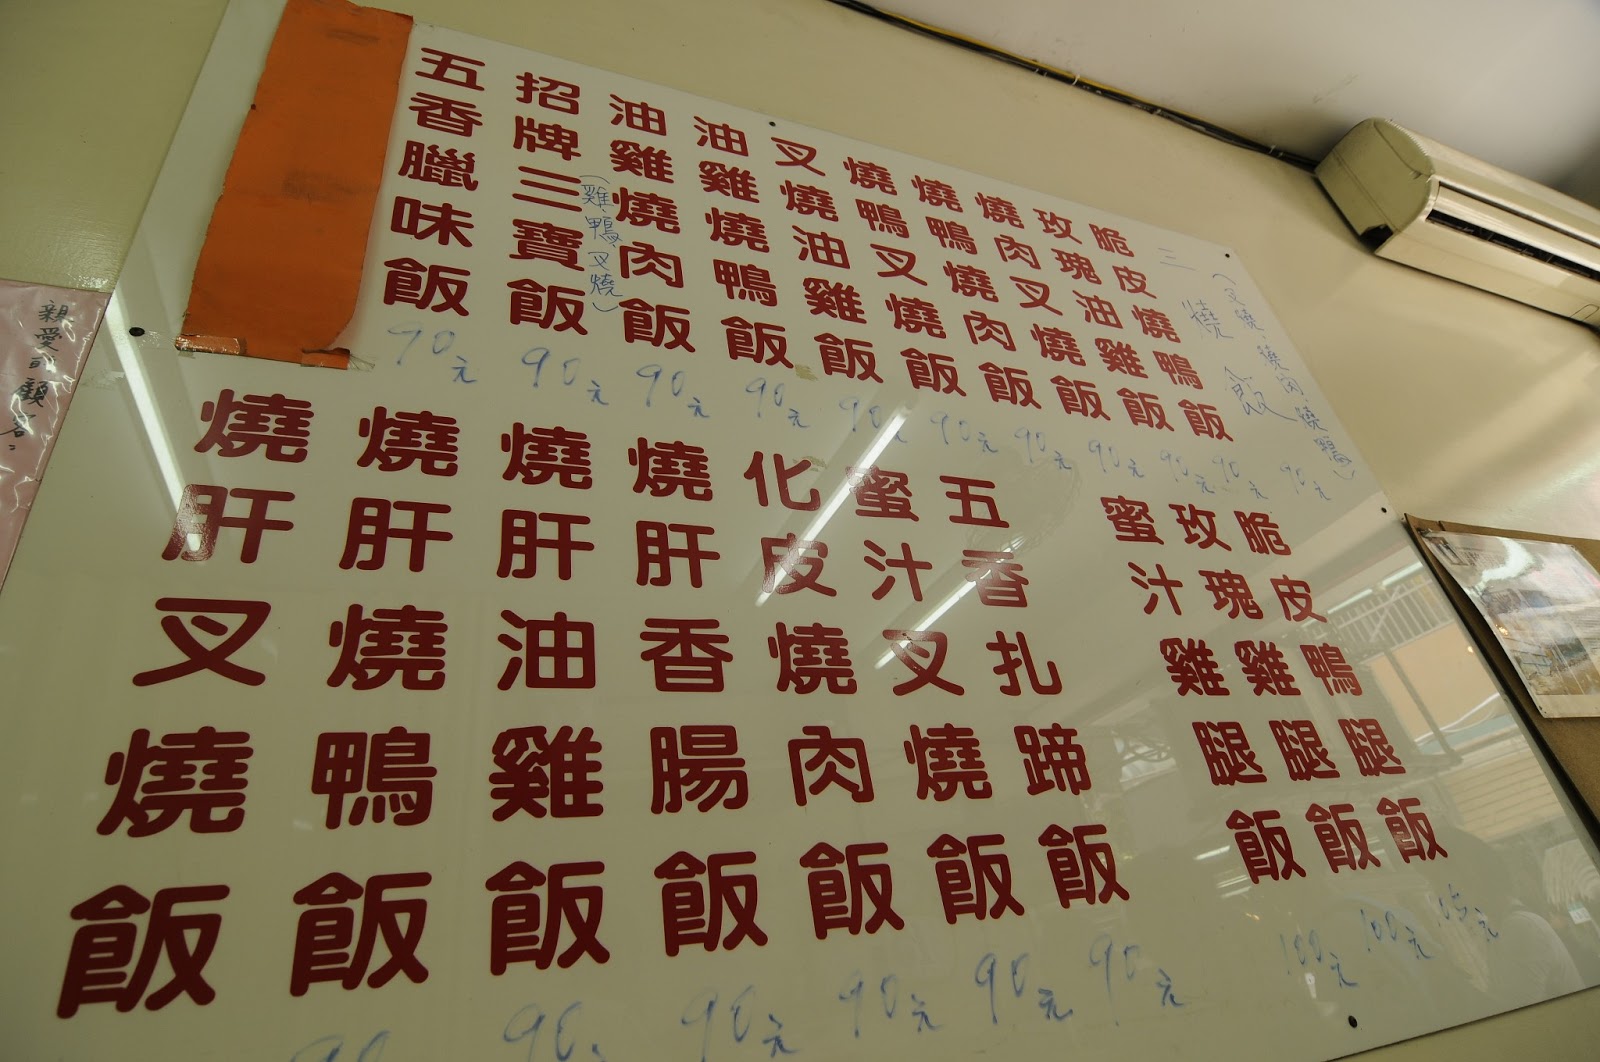 三燒飯
(叉燒、燒肉、燒鴨)
90元
脆皮燒鴨飯
90元
玫瑰油雞飯
90元
燒肉叉燒飯
90元
燒鴨燒肉飯
90元
燒鴨叉燒飯
90元
叉燒油雞飯
90元
油雞燒鴨飯
90元
油雞燒肉飯
90元
招牌三寶飯
(雞、鴨、叉燒)
90元
五香臘味飯
90元
脆皮鴨腿飯
玫瑰雞腿飯
100元
蜜汁雞腿飯
100元
五香扎蹄飯
90元
蜜汁叉燒飯
90元
化皮燒肉飯
90元
燒肝香腸飯
90元
燒肝油雞飯
90
燒肝燒鴨飯
90
燒肝叉燒飯
親愛的顧客：